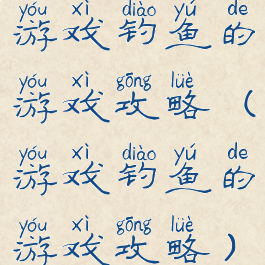 yóu xì diào yú de
游戏钓鱼的
yóu xì gōng lüè
游戏攻略（
yóu xì diào yú de
游戏钓鱼的
yóu xì gōng lüè
游戏攻略）